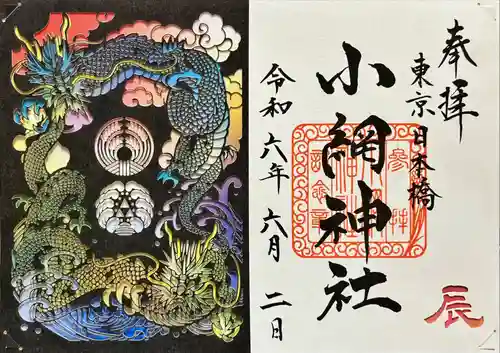 奉拝
東京日本橋
小網神社
令和六年六月二日
辰